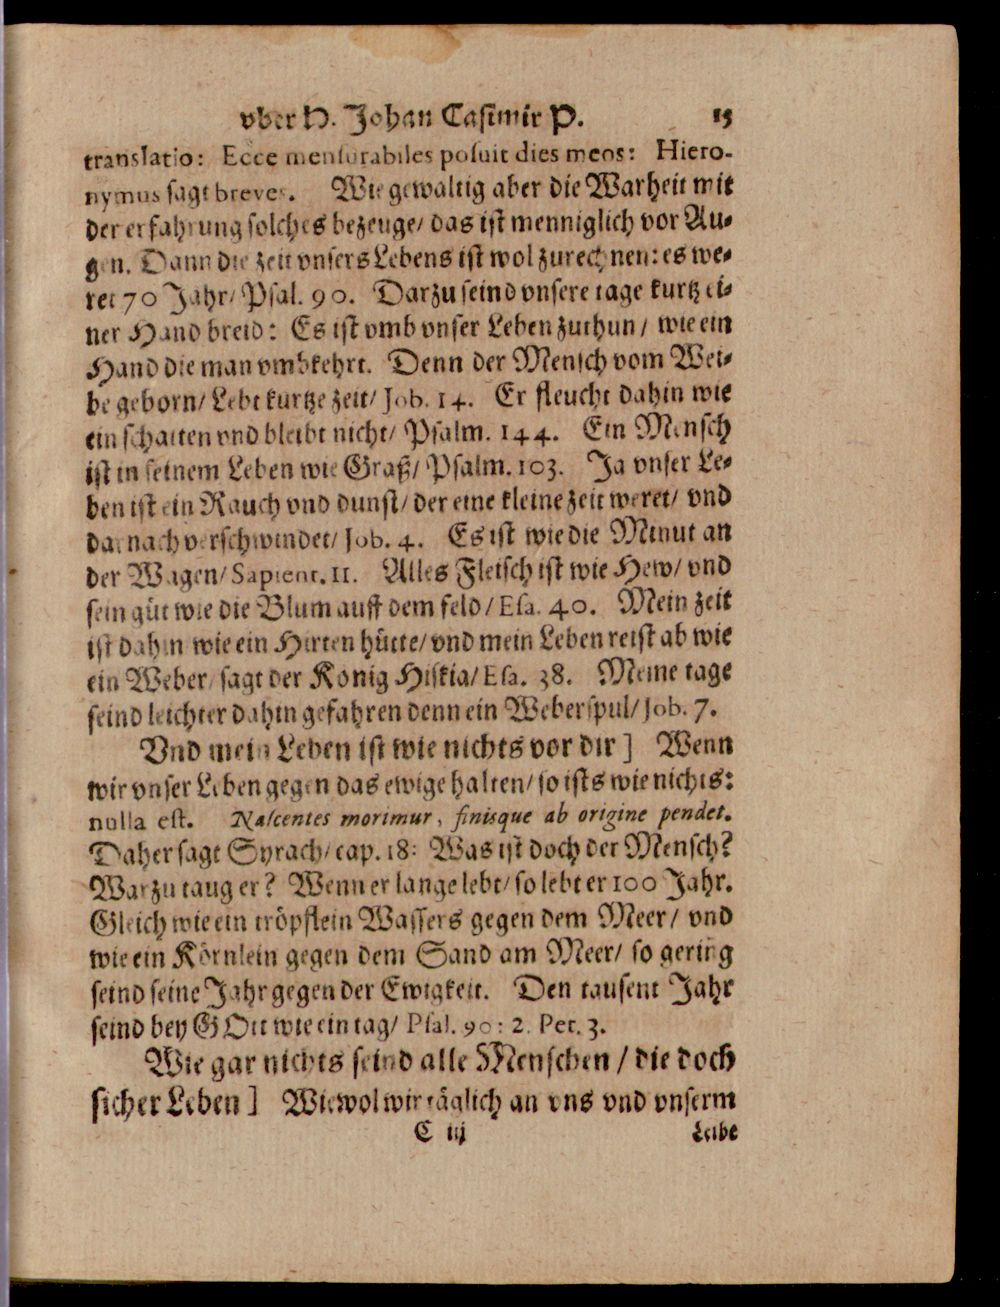 vber H. Johan Casimir P. 15
translatio: Ecce mensurabiles posuit dies meos: Hiero-
nymus sagt breves. Wie gewaltig aber die Warheit mit
der erfahrung solches bezeuge/ das ist menniglich vor Au-
gen. Dann die zeit vnsers Lebens ist wol zurechnen: es we-
ret 70 Jahr/ Psal. 90. Darzu seind vnsere tage kurtz ei-
ner Hand breid: Es ist vmb vnser Leben zuthun/ wie ein
Hand die man vmbkehrt. Denn der Mensch vom Wei-
be geborn/ Lebt kurtze zeit/ Job. 14. Er fleucht dahin wie
ein schatten vnd bleibt nicht/ Psalm. 144. Ein Mensch
ist in seinem Leben wie Graß/ Psalm. 103. Ja vnser Le-
ben ist ein Rauch vnd dunst/ der eine kleine zeit weret/ vnd
darnach verschwindet/ Job. 4. Es ist wie die Minut an
der Wagen/ Sapient. 11. Alles Fleisch ist wie Hew/ vnd
sein güt wie die Blum auff dem feld/ Esa. 40. Mein zeit
ist dahin wie ein Hirten hütte/ vnd mein Leben reist ab wie
ein Weber/ sagt der Konig Hiskia/ Esa. 38. Meine tage
seind leichter dahin gefahren denn ein Weberspul/ Job. 7.
Vnd mein Leben ist wie nichts vor dir] Wenn
wir vnser Leben gegen das ewige halten/ so ists wie nichts:
nulla est. Nascentes morimur, finisque ab origine pendet.
Daher sagt Syrach/ cap. 18: Was ist doch der Mensch?
Warzu taug er? Wenn er lange lebt/ so lebt er 100 Jahr.
Gleich wie ein tröpflein Wassers gegen dem Meer/ vnd
wie ein Körnlein gegen dem Sand am Meer/ so gering
seind seine Jahr gegen der Ewigkeit. Den tausent Jahr
seind bey GOtt wie ein tag/ Psal. 90: 2. Pet. 3.
Wie gar nichts seind alle Menschen/ die doch
sicher Leben] Wiewol wir täglich an vns vnd vnserm
C iij Leibe